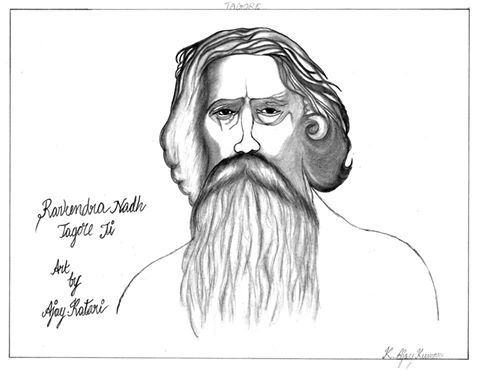 TAGORE
Ravirendra Nadh
Tagore Ji
Art
by
Ajay Katari
K. Ajay Kumar